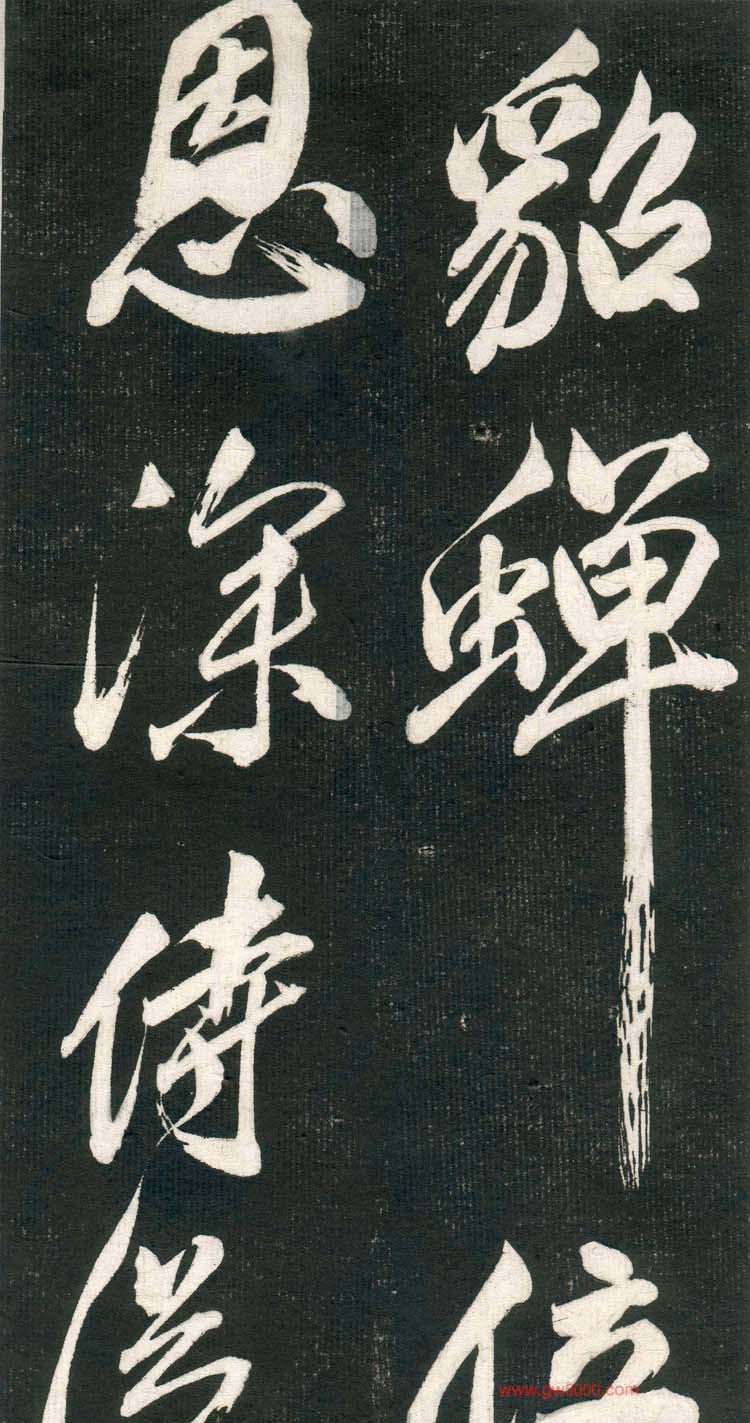 貂蟬位
恩深侍從
www.gw3000.com